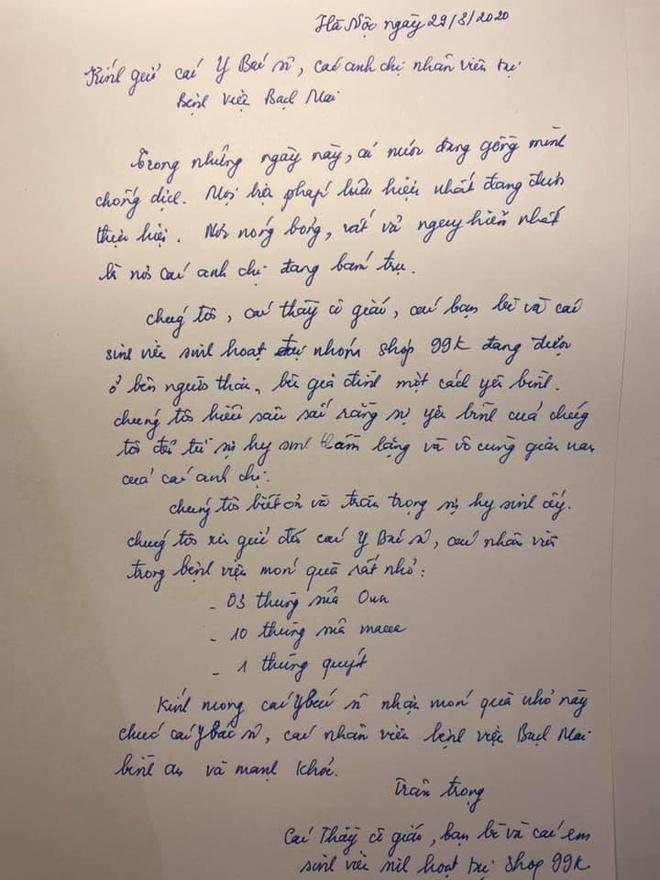 Hà Nội ngày 29/3/2020
Kính gửi các Y Bác sĩ, các anh chị nhân viên tại
Bệnh viện Bạch Mai
Trong những ngày này, cả nước đang gồng mình
chống dịch. Mọi biện pháp hữu hiệu nhất đang được
thực hiện. Nơi nóng bỏng, vất vả nguy hiểm nhất
là nơi các anh chị đang bám trụ.
Chúng tôi, các thầy cô giáo, các bạn bè và các
sinh viên sinh hoạt tại nhóm shop 99K đang được
ở bên người thân, bên gia đình một cách yên bình.
Chúng tôi hiểu sâu sắc rằng sự yên bình của chúng
tôi đến từ sự hy sinh thầm lặng và vô cùng gian nan
của các anh chị.
Chúng tôi biết ơn và trân trọng sự hy sinh ấy.
Chúng tôi xin gửi đến các Y Bác sĩ, các nhân viên
trong bệnh viện món quà rất nhỏ:
- 03 thùng sữa
- 10 thùng sữa macca
- 1 thùng quýt
Kính mong các Y bác sĩ nhận món quà nhỏ này
chúc các Y bác sĩ, các nhân viên bệnh viện Bạch Mai
bình an và mạnh khỏe.
Trân trọng
Các Thầy cô giáo, bạn bè và các em
sinh viên sinh hoạt tại shop 99K